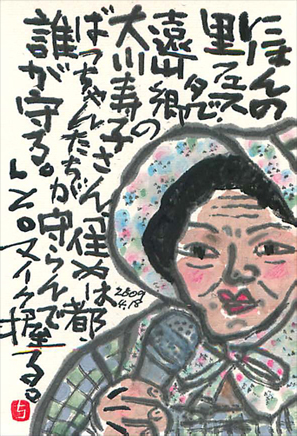 にほんの
里フェスタで、
遠山郷の
大川寿子さん、住めば都、
ばっちゃんたちが守らんで
誰が守る。」と。マイク握る。
2009
4.18